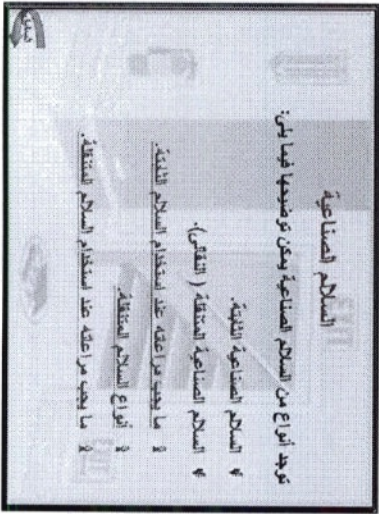 السلالم الصناعية
توجد أنواع من السلالم الصناعية يمكن توضيحها فيما يلي:
السلالم الصناعية الثابتة.
السلالم الصناعية المتنقلة ( النقالى).
ما يجب مراعاته عند استخدام السلالم الثابتة.
أنواع السلالم المتنقلة.
ما يجب مراعاته عند استخدام السلالم المتنقلة.